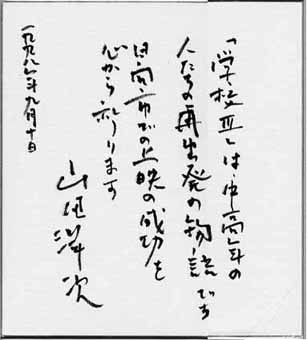 「学校Ⅲ」は中高年の
人たちの再出発の物語です
日向市での上映の成功を
心から祈ります
山田洋次
一九九八年九月十日